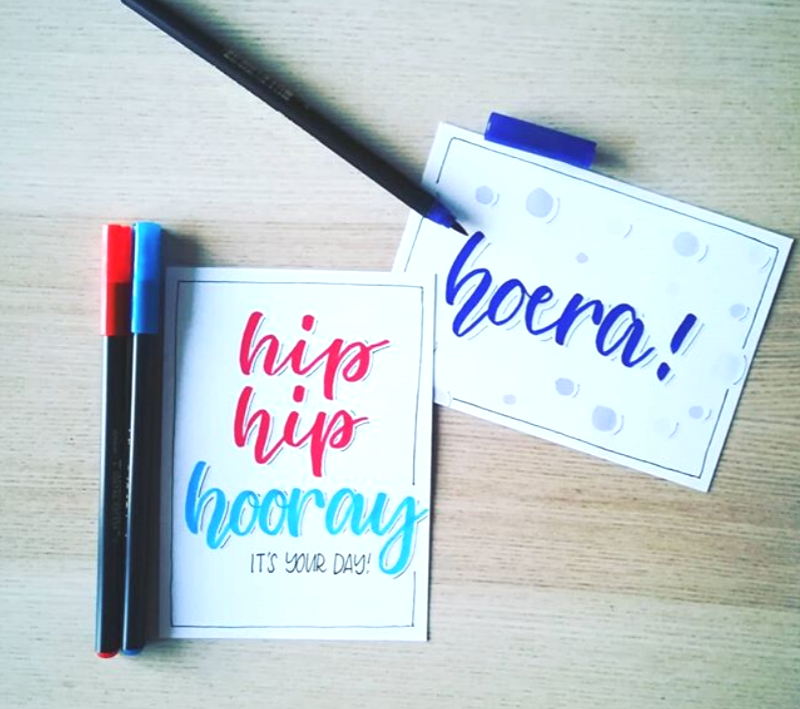 hip
hip
hooray
IT'S YOUR DAY!
hoera!